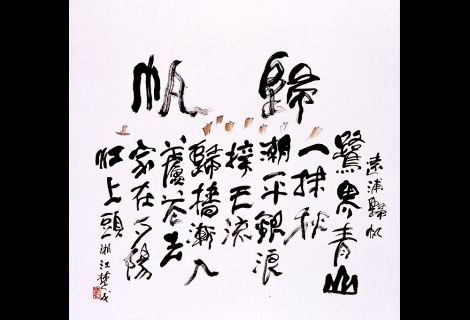 歸帆
遠浦歸帆
鷺界青山
一抹秋
潮平銀浪
接天流
歸檣漸入
蘆花去
家在夕陽
江上頭 湘江楚戈